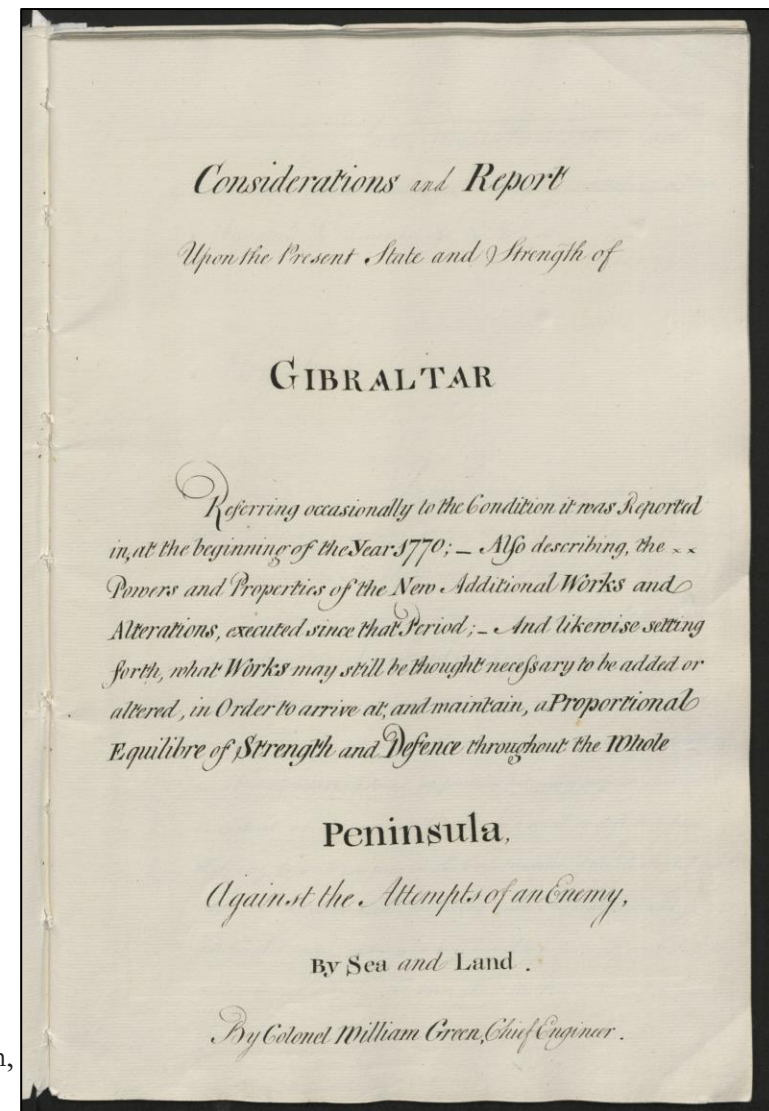 Considerations and Report
Upon the Present State and Strength of
GIBRALTAR
Referring occasionally to the Condition it was Reported
in, at the beginning of the Year 1770; _ Also describing, the ××
Powers and Properties of the New Additional Works and
Alterations, executed since that Period; _ And likewise setting
forth, what Works may still be thought necessary to be added or
altered, in Order to arrive at, and maintain, a Proportional
Equilibre of Strength and Defence throughout the Whole
Peninsula,
Against the Attempts of an Enemy,
By Sea and Land.
By Colonel William Green, Chief Engineer.